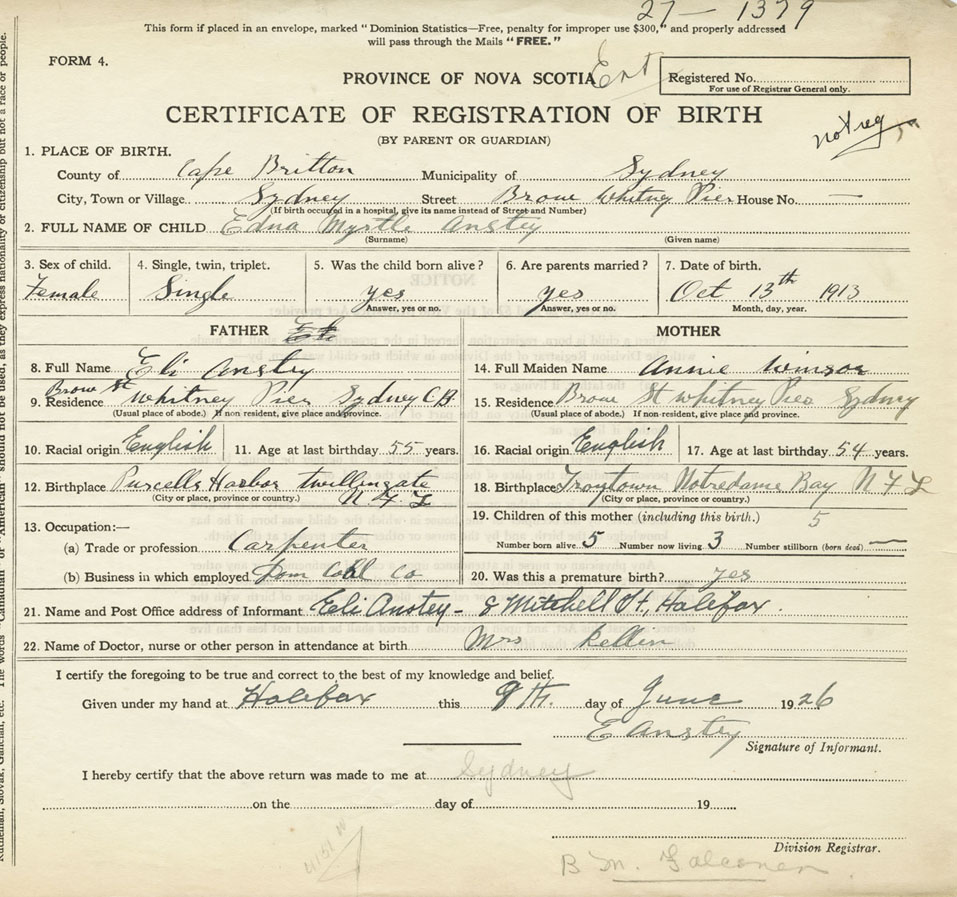 27 — 1379
This form if placed in an envelope, marked "Dominion Statistics—Free, penalty for improper use $300," and properly addressed
will pass through the Mails "FREE."
FORM 4.
PROVINCE OF NOVA SCOTIA Ent
Registered No.
For use of Registrar General only.
CERTIFICATE OF REGISTRATION OF BIRTH
(BY PARENT OR GUARDIAN)
not reg
1. PLACE OF BIRTH.
County of Cape Britton Municipality of Sydney
City, Town or Village Sydney Street Brone Whitney Pier House No. —
(If birth occured in a hospital, give its name instead of Street and Number)
2. FULL NAME OF CHILD Edna Myrtle Anstey
(Surname) (Given name)
3. Sex of child. 4. Single, twin, triplet. 5. Was the child born alive? 6. Are parents married? 7. Date of birth.
Female Single yes yes Oct 13th 1913
Answer, yes or no. Answer, yes or no. Month, day, year.
FATHER MOTHER
8. Full Name Eli Anstey 14. Full Maiden Name Annie Winsor
9. Residence Brone St Whitney Pier Sydney C.B. 15. Residence Brone St Whitney Pier Sydney
(Usual place of abode.) If non resident, give place and province. (Usual place of abode.) If non resident, give place and province.
10. Racial origin English 11. Age at last birthday 55 years. 16. Racial origin English 17. Age at last birthday 54 years.
12. Birthplace Purcells Harbor Twillingate N.F.L 18. Birthplace Troytown Notredame Bay N F L
(City or place, province or country.) (City or place, province or country.)
13. Occupation:— 19. Children of this mother (including this birth.) 5
(a) Trade or profession Carpenter Number born alive 5 Number now living 3 Number stillborn (born dead) —
(b) Business in which employed Dom Coal Co 20. Was this a premature birth? yes
21. Name and Post Office address of Informant Eli Anstey - 8 Mitchell St., Halifax.
22. Name of Doctor, nurse or other person in attendance at birth Mrs Kellin
I certify the foregoing to be true and correct to the best of my knowledge and belief.
Given under my hand at Halifax this 9th. day of June 1926
E Anstey
Signature of Informant.
I hereby certify that the above return was made to me at Sydney
on the day of 19
Division Registrar.
B M.